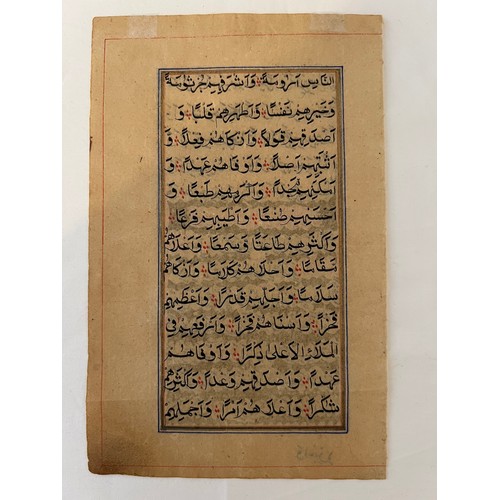 النَّاسِ اَرُومَةً وَاَشْرَفِهِمْ جُرْثُومَةً
وَخَيْرِهِمْ نَفْسًا وَاَطْهَرِهِمْ قَلْبًا وَ
اَصْدَقِهِمْ قَوْلًا وَاَزْكَاهُمْ فِعْلًا وَ
اَثْبَتِهِمْ اَصْلًا وَاَوْفَاهُمْ عَهْدًا وَ
اَمْكَنِهِمْ مَجْدًا وَاَكْرَمِهِمْ طَبْعًا وَ
اَحْسَنِهِمْ صُنْعًا وَاَطْيَبِهِمْ فَرْعًا
وَاَكْثَرِهِمْ طَاعَتًا وَسَمْعًا وَاَعْلَاهُمْ
مَقَامًا وَاَحْلَاهُمْ كَلَامًا وَاَزْكَاهُمْ
سَلَامًا وَاَجَلِّهِمْ قَدْرًا وَاَعْظَمِهِمْ
فَخْرًا وَاَسْنَاهُمْ فَخْرًا وَاَرْفَعِهِمْ فِي
الْمَلَاءِ الْاَعْلٰى ذِكْرًا وَاَوْفَاهُمْ
عَهْدًا وَاَصْدَقِهِمْ وَعْدًا وَاَكْثَرِهِمْ
شُكْرًا وَاَعْلَاهُمْ اَمْرًا وَاَجْمَلِهِمْ